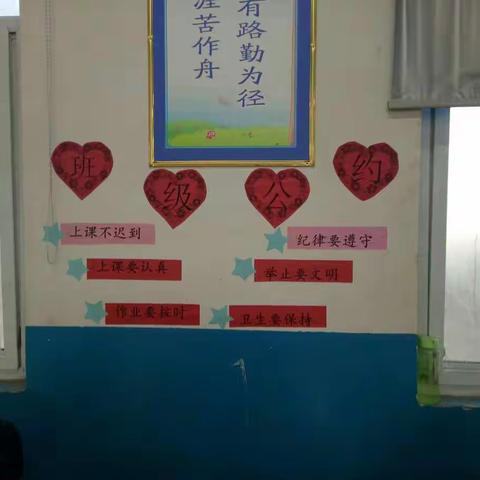 有路勤为径
涯苦作舟
班级公约
上课不迟到
上课要认真
作业要按时
纪律要遵守
举止要文明
卫生要保持